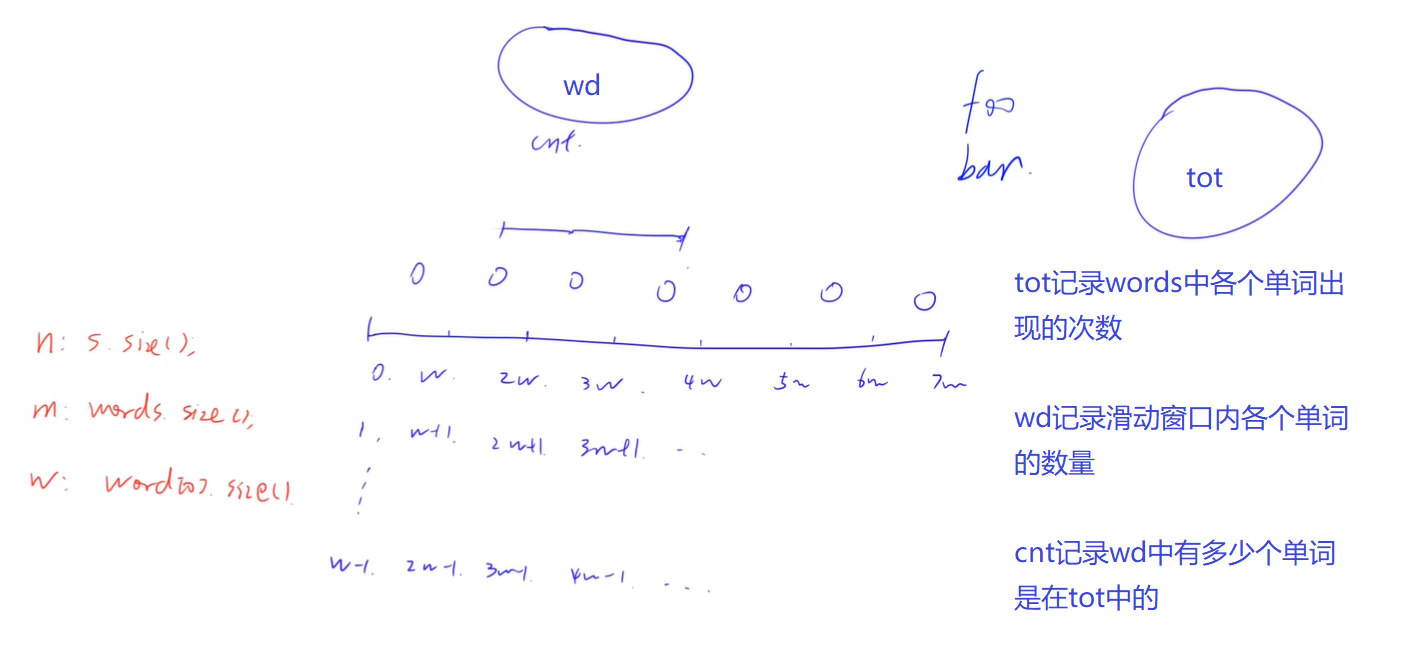 wd
cnt.
foo
bar.
tot
0. w. 2w. 3w. 4w 5w 6w 7w
1, w+1. 2w+1. 3w+1. ...
w-1. 2w-1. 3w-1. 4w-1 ...
n: s.size();
m: words.size();
w: word[0].size()
tot记录words中各个单词出
现的次数
wd记录滑动窗口内各个单词
的数量
cnt记录wd中有多少个单词
是在tot中的